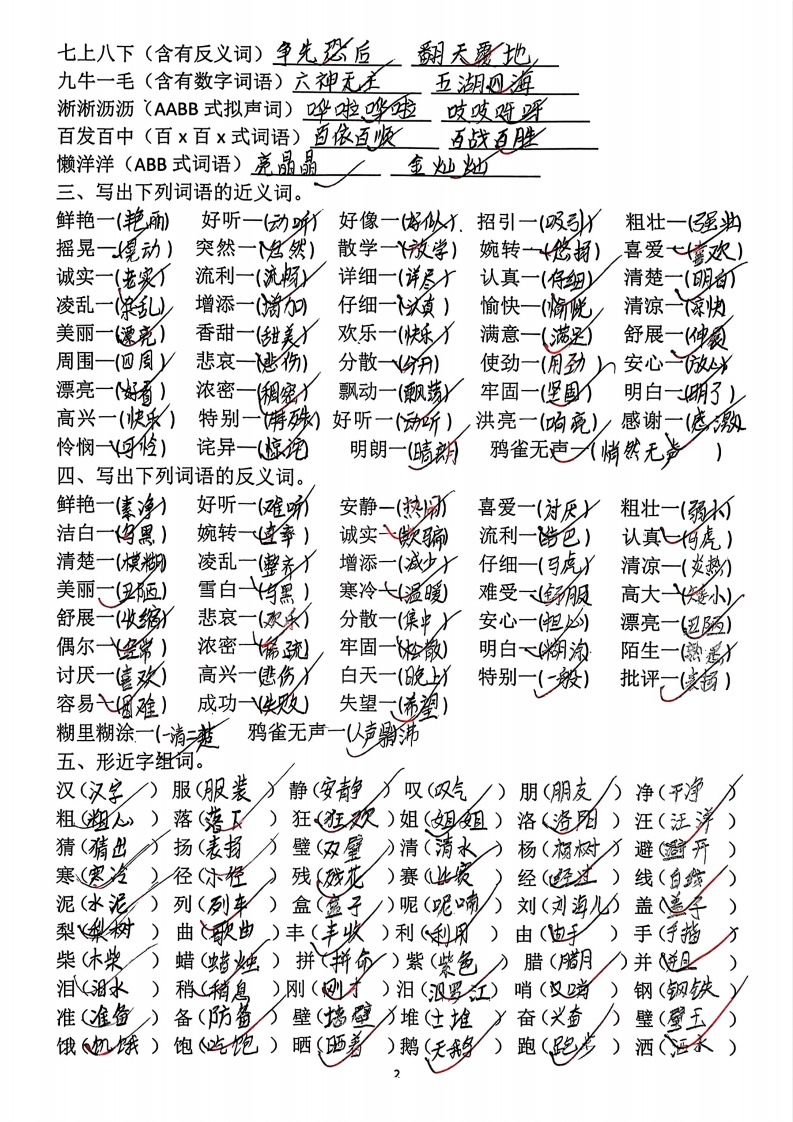 七上八下（含有反义词）争先恐后 翻天覆地
九牛一毛（含有数字词语）六神无主 五湖四海
淅淅沥沥（AABB 式拟声词）哗啦哗啦 吱吱呀呀
百发百中（百 x 百 x 式词语）百依百顺 百战百胜
懒洋洋（ABB 式词语）亮晶晶 金灿灿
三、写出下列词语的近义词。
鲜艳一(艳丽) 好听一(动听) 好像一(好似) 招引一(吸引) 粗壮一(强壮)
摇晃一(晃动) 突然一(忽然) 散学一(放学) 婉转一(悠扬) 喜爱一(喜欢)
诚实一(老实) 流利一(流畅) 详细一(详尽) 认真一(仔细) 清楚一(明白)
凌乱一(杂乱) 增添一(增加) 仔细一(认真) 愉快一(愉悦) 清凉一(凉快)
美丽一(漂亮) 香甜一(甜美) 欢乐一(快乐) 满意一(满足) 舒展一(伸展)
周围一(四周) 悲哀一(悲伤) 分散一(分开) 使劲一(用劲) 安心一(放心)
漂亮一(好看) 浓密一(稠密) 飘动一(飘荡) 牢固一(坚固) 明白一(明了)
高兴一(快乐) 特别一(特殊) 好听一(动听) 洪亮一(响亮) 感谢一(感激)
怜悯一(可怜) 诧异一(惊诧) 明朗一(晴朗) 鸦雀无声一(悄然无声)
四、写出下列词语的反义词。
鲜艳一(素净) 好听一(难听) 安静一(热闹) 喜爱一(讨厌) 粗壮一(弱小)
洁白一(乌黑) 婉转一(直率) 诚实一(欺骗) 流利一(结巴) 认真一(马虎)
清楚一(模糊) 凌乱一(整齐) 增添一(减少) 仔细一(马虎) 清凉一(炎热)
美丽一(丑陋) 雪白一(乌黑) 寒冷一(温暖) 难受一(舒服) 高大一(矮小)
舒展一(收缩) 悲哀一(欢乐) 分散一(集中) 安心一(担心) 漂亮一(丑陋)
偶尔一(经常) 浓密一(稀疏) 牢固一(松散) 明白一(糊涂) 陌生一(熟悉)
讨厌一(喜欢) 高兴一(悲伤) 白天一(晚上) 特别一(一般) 批评一(表扬)
容易一(困难) 成功一(失败) 失望一(希望)
糊里糊涂一(一清二楚 鸦雀无声一(人声鼎沸
五、形近字组词。
汉（汉字） 服（服装） 静（安静） 叹（叹气） 朋（朋友） 净（干净）
粗（粗心） 落（落下） 狂（狂欢） 姐（姐姐） 洛（洛阳） 汪（汪洋）
猜（猜出） 扬（表扬） 璧（双璧） 清（清水） 杨（杨树） 避（避开）
寒（寒冷） 径（小径） 残（残花） 赛（比赛） 经（经过） 线（白线）
泥（水泥） 列（列车） 盒（盒子） 呢（呢喃） 刘（刘海儿） 盖（盖子）
梨（梨树） 曲（歌曲） 丰（丰收） 利（利用） 由（由于） 手（手指）
柴（木柴） 蜡（蜡烛） 拼（拼命） 紫（紫色） 腊（腊月） 并（并且）
泪（泪水） 稍（稍息） 刚（刚才） 汨（汨罗江） 哨（口哨） 钢（钢铁）
准（准备） 备（防备） 壁（墙壁） 堆（土堆） 奋（兴奋） 璧（璧玉）
饿（饥饿） 饱（吃饱） 晒（晒着） 鹅（天鹅） 跑（跑步） 洒（洒水）
2